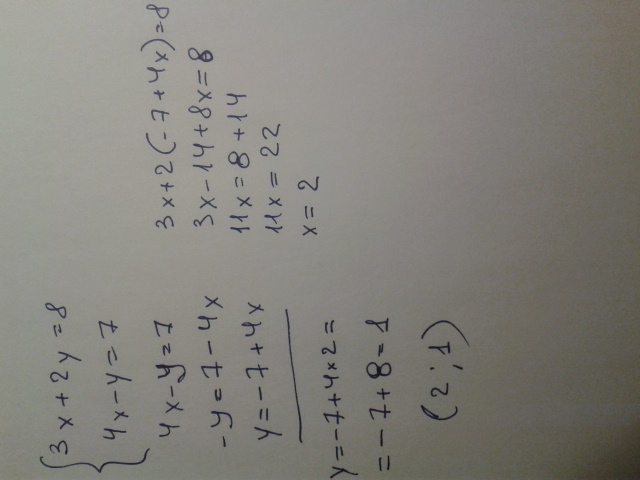 {3x+2y=8
4x-y=7
4x-y=7
-y=7-4x
y=-7+4x
3x+2(-7+4x)=8
3x-14+8x=8
11x=8+14
11x=22
x=2
y=-7+4×2=
=-7+8=1
(2;1)